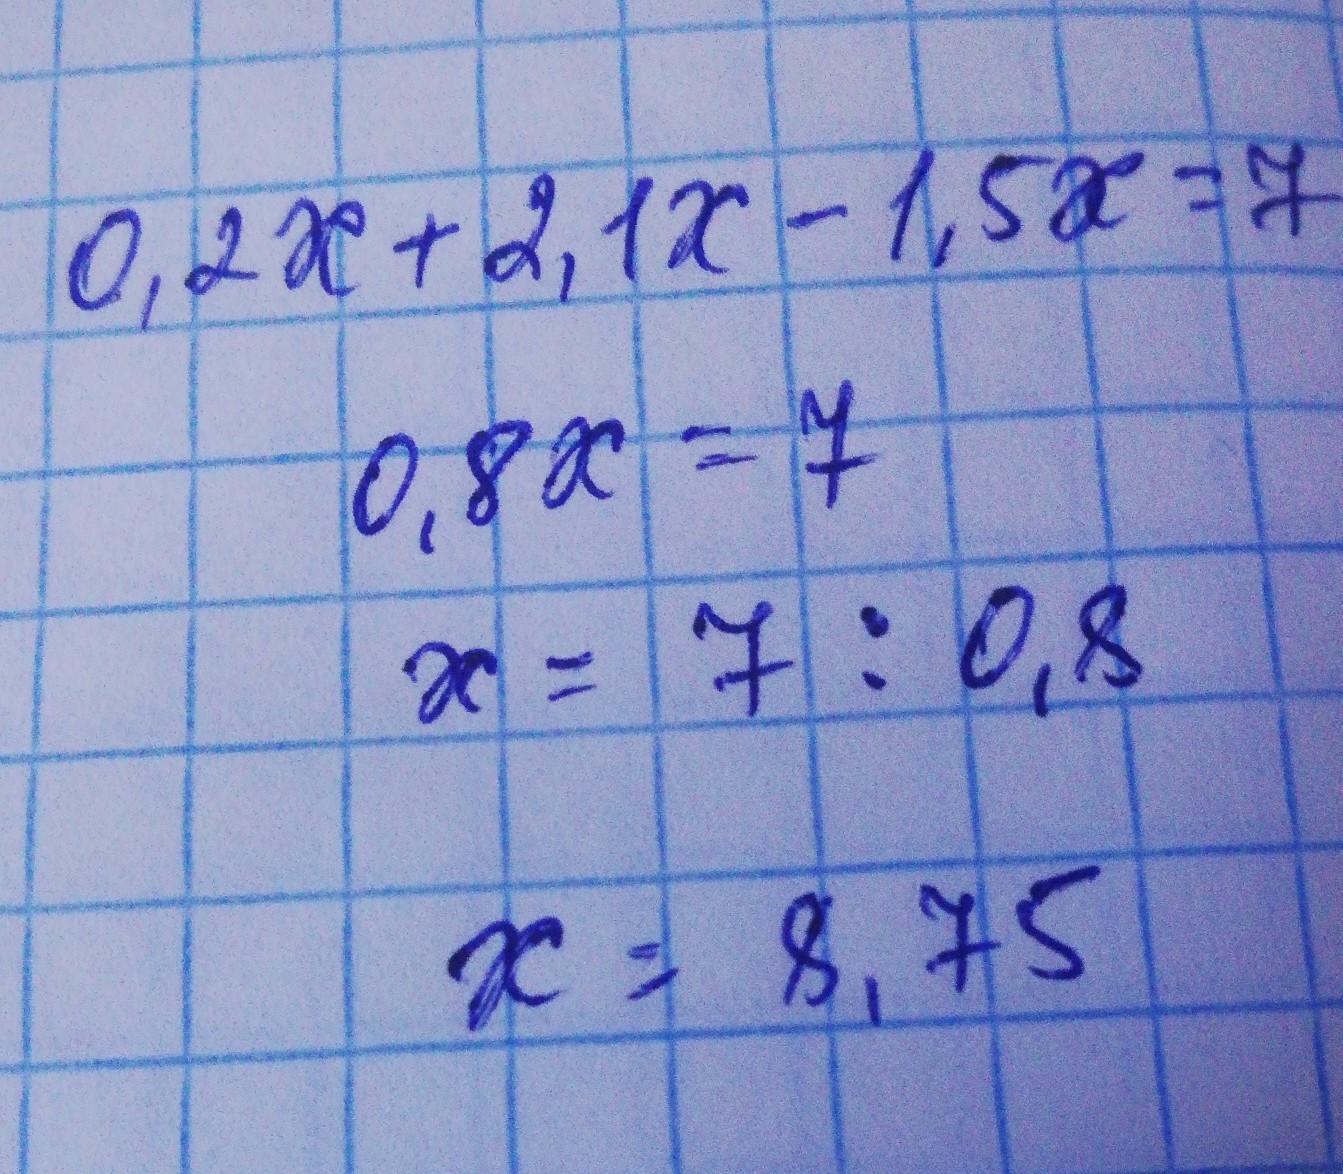 0,2x+2,1x-1,5x=7
0,8x=7
x=7:0,8
x=8,75